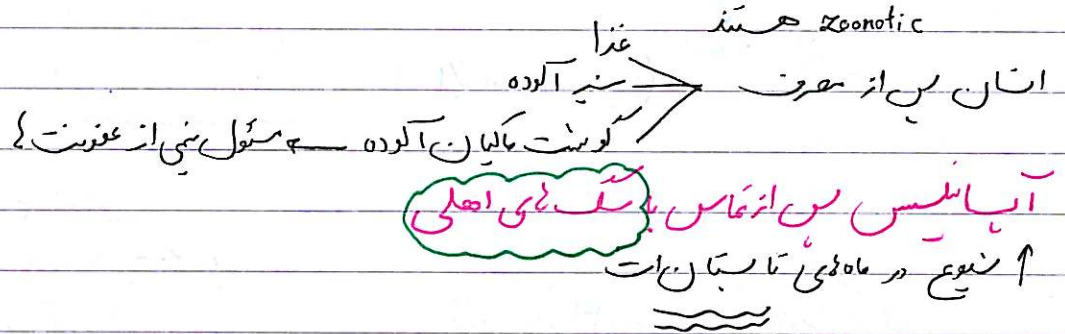 zoonotic هستند
غذا
انسان پس از مصرف شیر آلوده
گوشت ماکیان آلوده → مسئول نیمی از عفونت ها
پس از تماس با سگ های اهلی
↑ شیوع در ماه های تابستان است